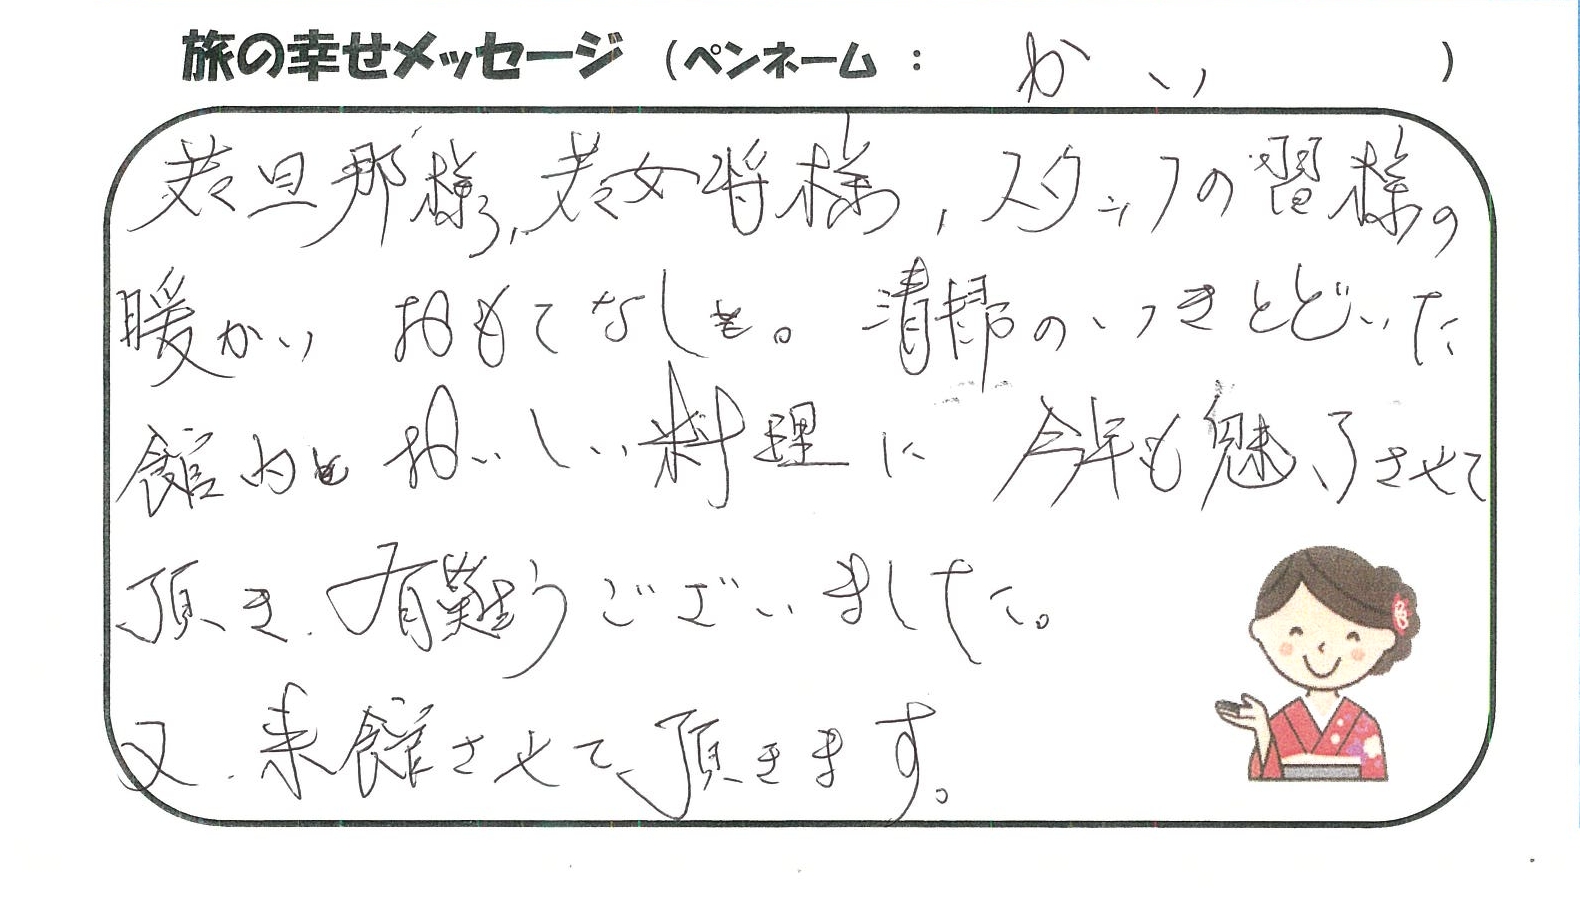 旅の幸せメッセージ (ペンネーム : かい )
若旦那様,若女将様,スタッフの皆様の
暖かいおもてなしも。清掃のいきとどいた
館内とおいしい料理に今年も魅了させて
頂き、有難うございました。
又、来館させて頂きます。